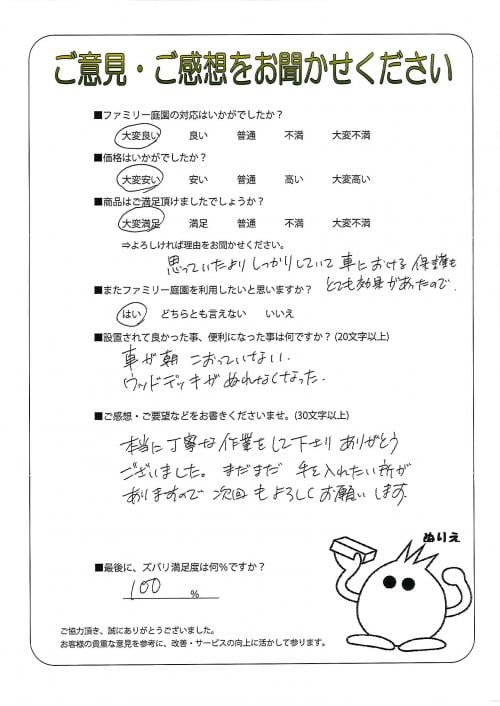 ご意見・ご感想をお聞かせください
■ファミリー庭園の対応はいかがでしたか？
大変良い 良い 普通 不満 大変不満
■価格はいかがでしたか？
大変安い 安い 普通 高い 大変高い
■商品はご満足頂けましたでしょうか？
大変満足 満足 普通 不満 大変不満
⇒よろしければ理由をお聞かせください。
思っていたよりしっかりしていて 車における保護も
とても効果があったので.
■またファミリー庭園を利用したいと思いますか？
はい どちらとも言えない いいえ
■設置されて良かった事、便利になった事は何ですか？(20文字以上)
車が朝 こおっていない.
ウッドデッキがぬれなくなった.
■ご感想・ご要望などをお書きくださいませ。(30文字以上)
本当に丁寧な作業をして下さり ありがとう
ございました。まだまだ 手を入れたい所が
ありますので 次回もよろしくお願いします.
ぬりえ
■最後に、ズバリ満足度は何%ですか？
100 %
ご協力頂き、誠にありがとうございました。
お客様の貴重な意見を参考に、改善・サービスの向上に活かして参ります。